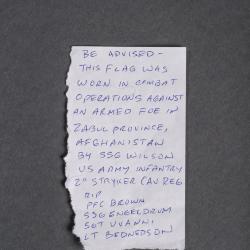 BE ADVISED -
THIS FLAG WAS
WORN IN COMBAT
OPERATIONS AGAINST
AN ARMED FOE IN
ZABUL PROVINCE,
AFGHANISTAN
BY SSG WILSON
US ARMY INFANTRY
2ND STRYKER CAV REG
RIP
PFC BROWN
SSG ENGELDRUM
SGT UVANNI
LT BEDNERSON